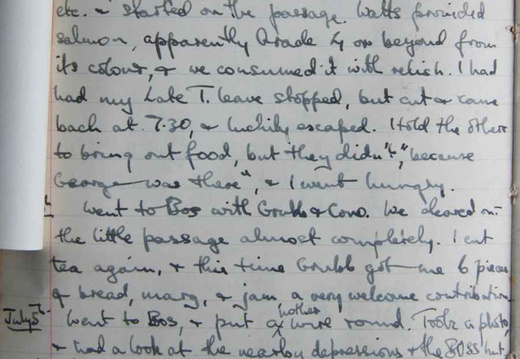 etc. & started on the passage. Watts provided
salmon, apparently Grade 4 or beyond from
its colour, & we consumed it with relish. I had
had my Late T. leave stopped, but cut & came
back at 7.30, & luckily escaped. I told the others
to bring out food, but they didn't, "because
George was there", & I went hungry.
Went to Bos with Grubb & Cono. We cleared out
the little passage almost completely. I cut
tea again, & this time Grubb got me 6 pieces
of bread, marg, & jam, a very welcome contribution.
July 5th Went to Bos, & put another wire round. Took a photo
& had a look at the nearby depressions & the Boss hut